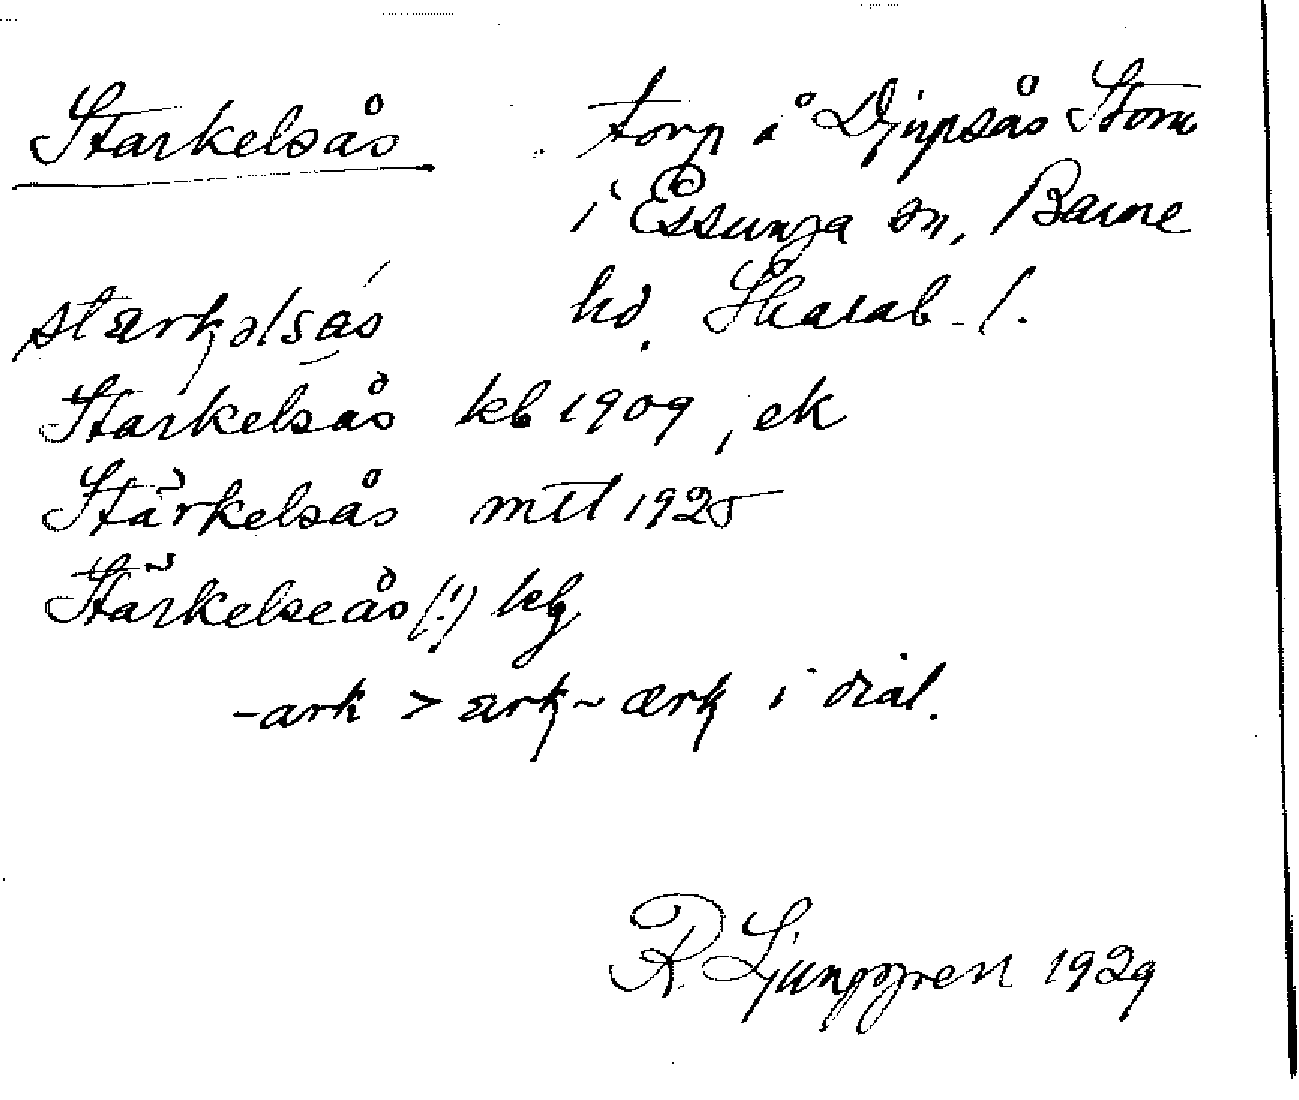 Starkelsås torp å Djupsås Stom
i Essunga sn, Barne
stærkəlsås hd. Skarab. l.
Starkelsås kb 1909, ek
Stärkelsås mtl 1925
Stärkelseås (!) kb
-ark > ærk ~ œrk i dial.
R. Ljunggren 1929